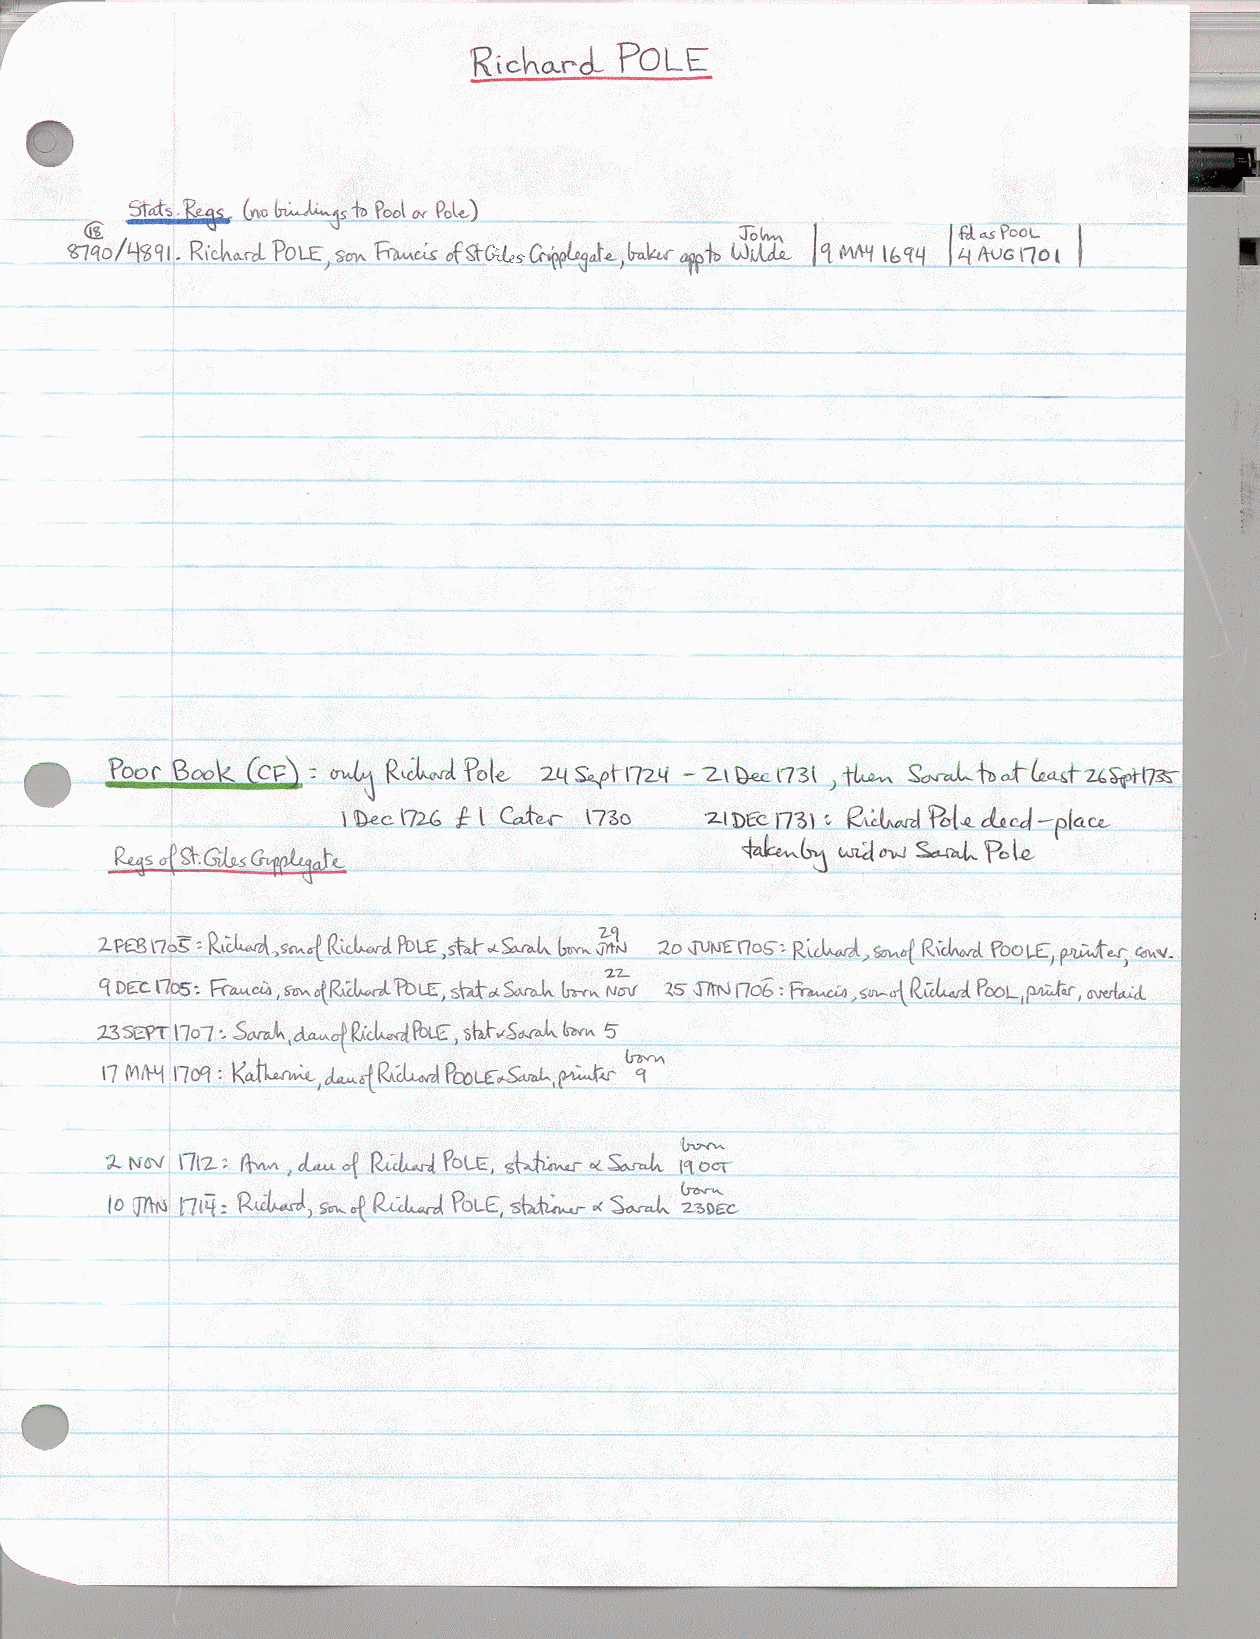 Richard POLE
Stats. Regs. (no bindings to Pool or Pole)
18
8790/4891. Richard POLE, son Francis of St Giles Cripplegate, baker app to John Wilde | 9 MAY 1694 | fd as POOL 4 AUG 1701 |
Poor Book (CF) : only Richard Pole 24 Sept 1724 - 21 Dec 1731, then Sarah to at least 26 Spt 1735
1 Dec 1726 £1 Cater 1730 21 DEC 1731: Richard Pole decd - place
taken by widow Sarah Pole
Regs of St. Giles Cripplegate
2 FEB 1705: Richard, son of Richard POLE, stat & Sarah born 29 JAN 20 JUNE 1705: Richard, son of Richard POOLE, printer, conv.
9 DEC 1705: Francis, son of Richard POLE, stat & Sarah born 22 NOV 25 JAN 1706: Francis, son of Richard POOL, printer, overlaid
23 SEPT 1707: Sarah, dau of Richard POLE, stat & Sarah born 5
17 MAY 1709: Katherine, dau of Richard POOLE & Sarah, printer born 9
2 NOV 1712: Ann, dau of Richard POLE, stationer & Sarah born 19 OCT
10 JAN 1714: Richard, son of Richard POLE, stationer & Sarah born 23 DEC